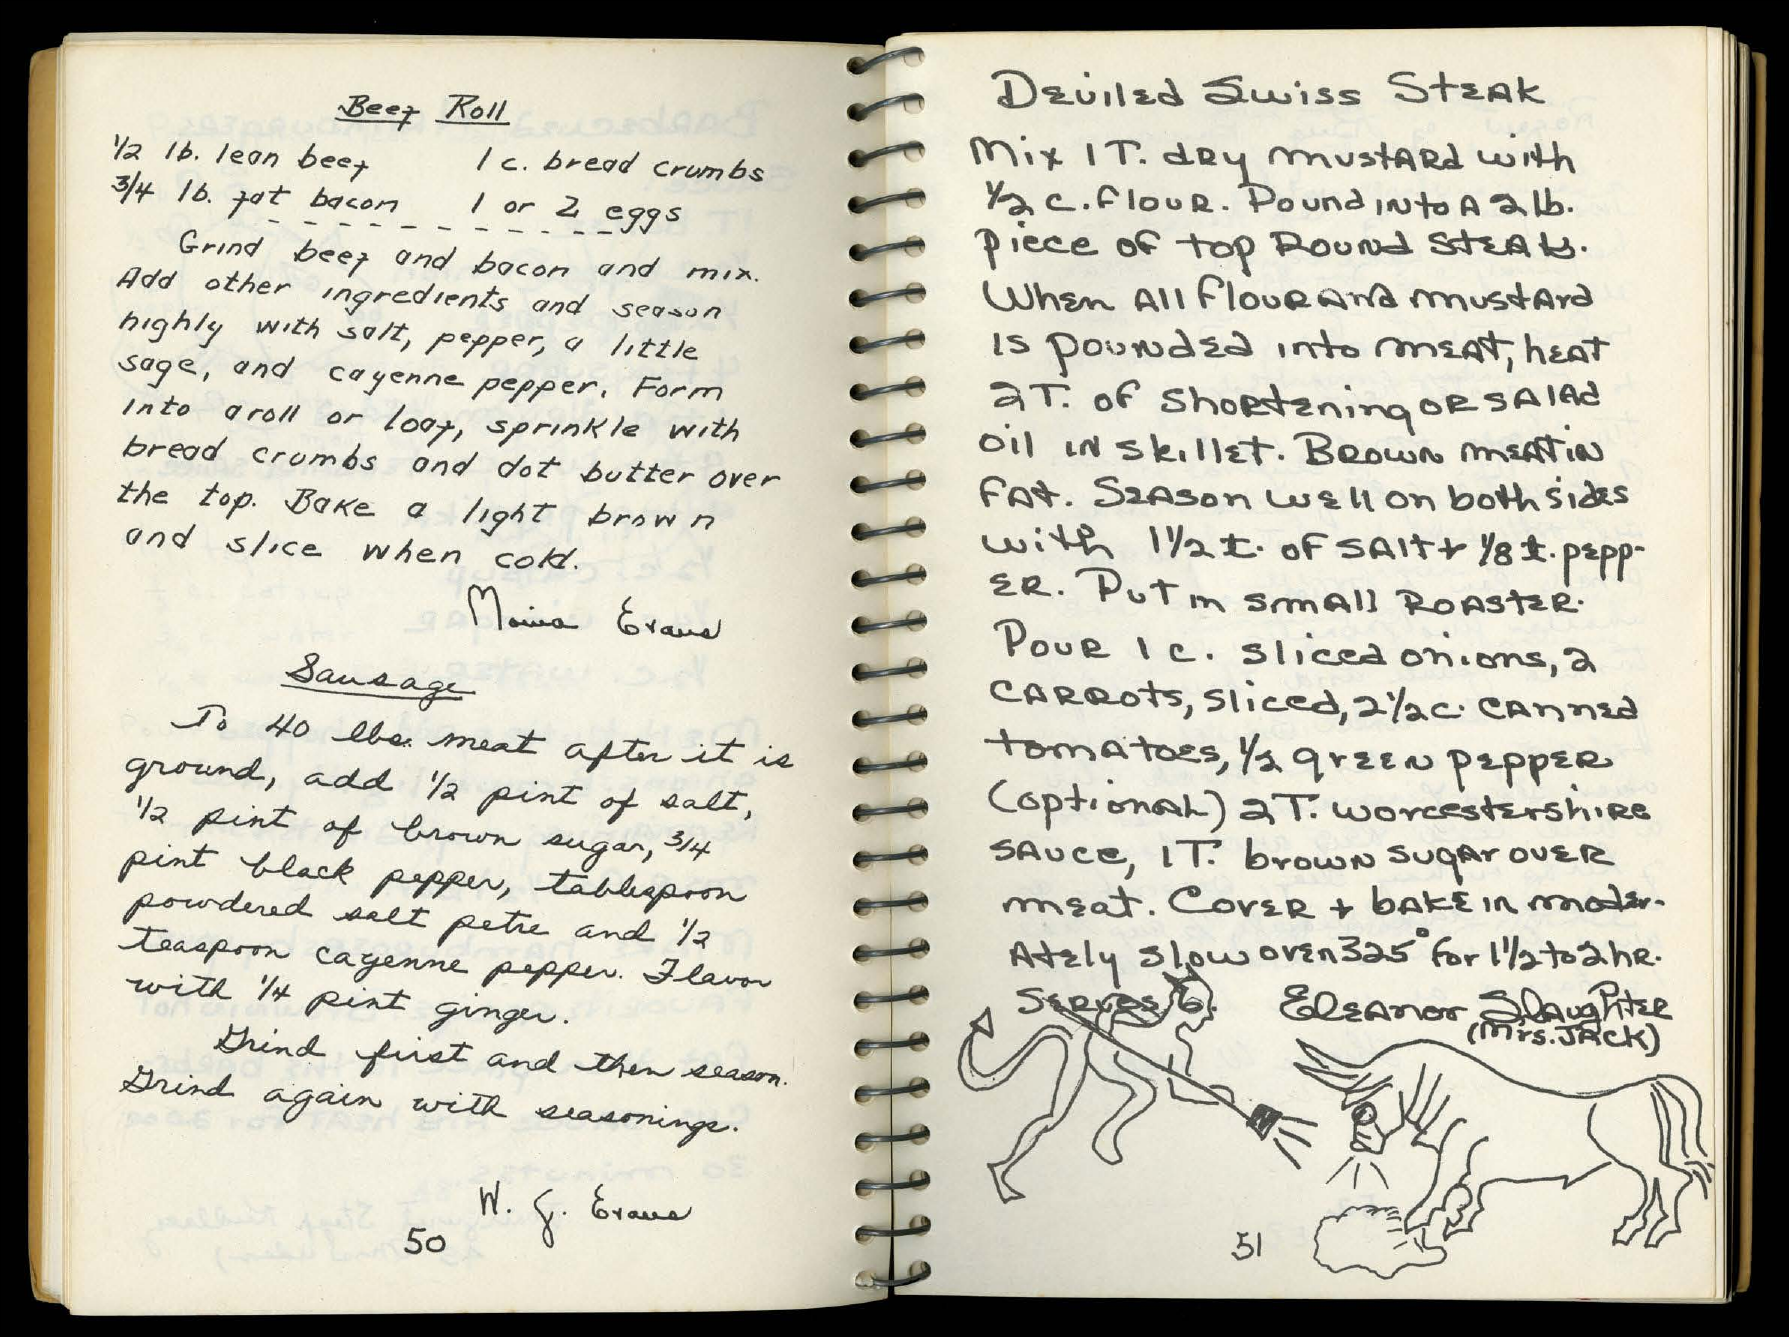 Beef Roll
1/2 lb. lean beef 1 c. bread crumbs
3/4 lb. fat bacon 1 or 2 eggs
Grind beef and bacon and mix.
Add other ingredients and season
highly with salt, pepper, a little
sage, and cayenne pepper. Form
into a roll or loaf, sprinkle with
bread crumbs and dot butter over
the top. Bake a light brown
and slice when cold.
Evans
Sausage
To 40 lbs. meat after it is
ground, add 1/2 pint of salt,
1/2 pint of brown sugar, 3/4
pint black pepper, tablespoon
powdered salt petre and 1/2
teaspoon cayenne pepper. Flavor
with 1/4 pint ginger.
Grind first and then season.
Grind again with seasonings.
W. J. Evans
50
Deviled Swiss Steak
Mix 1 T. dry mustard with
1/2 c. flour. Pound into a 2 lb.
piece of top Round Steak.
When all flour and mustard
is pounded into meat, heat
2 T. of shortening or salad
oil in skillet. Brown meat in
fat. Season well on both sides
with 1 1/2 t. of salt + 1/8 t. pepp-
er. Put in small roaster.
Pour 1 c. sliced onions, 2
carrots, sliced, 2 1/2 c. canned
tomatoes, 1/2 green pepper
(optional) 2 T. worcestershire
sauce, 1 T. brown sugar over
meat. Cover + bake in moder-
ately slow oven 325° for 1 1/2 to 2 hr.
Serves 6. Eleanor Slaughter
(Mrs. Jack)
51